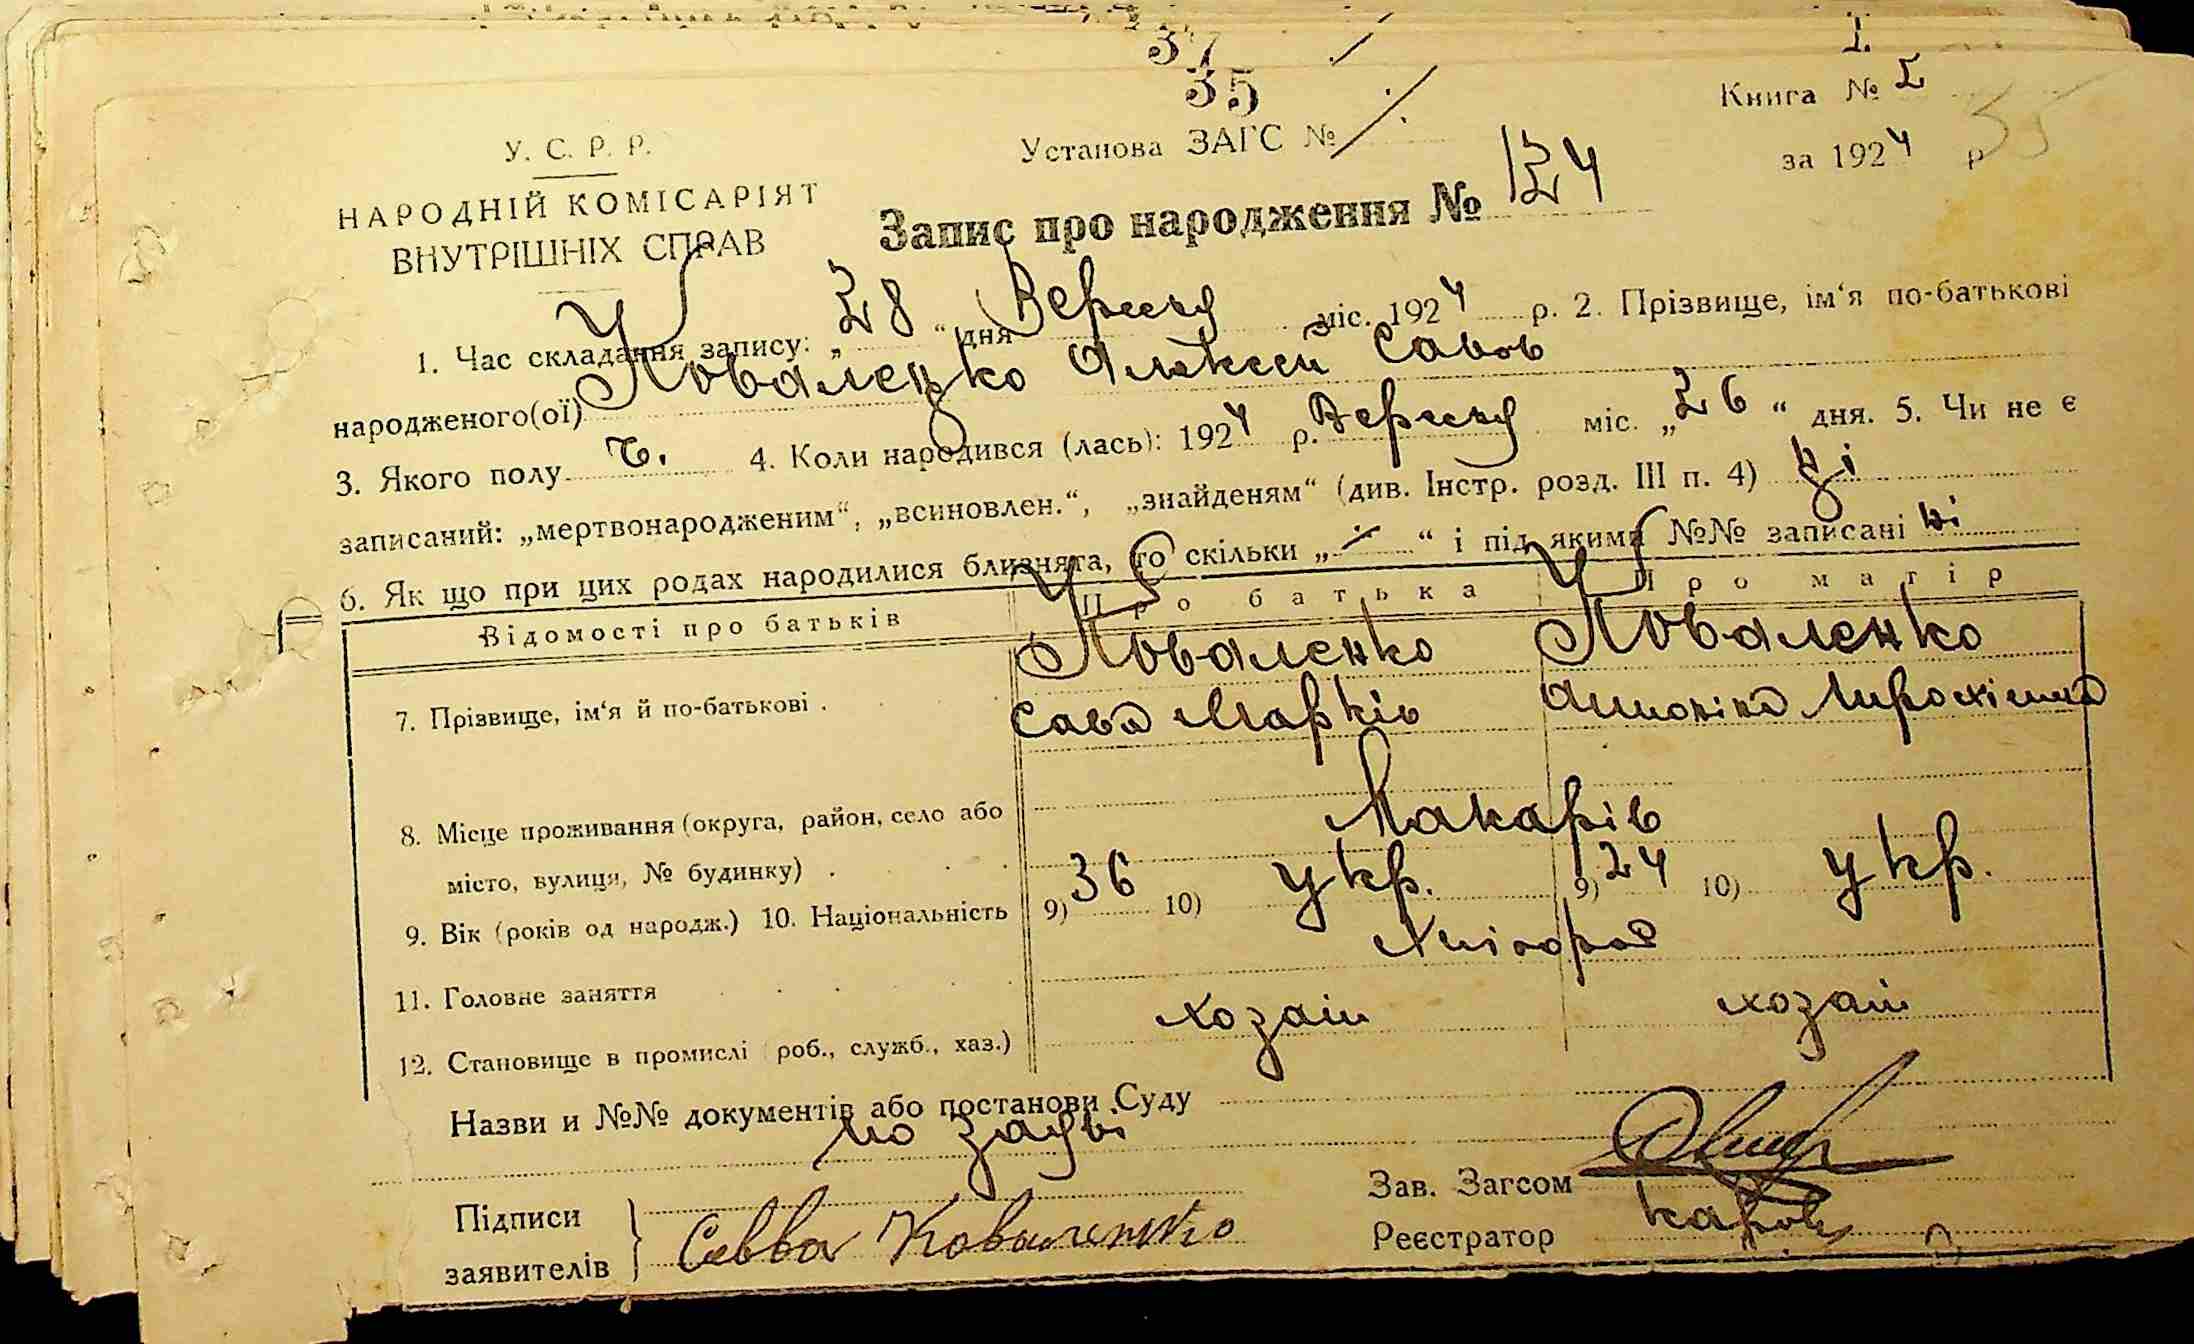 37
35
Книга № 2
У. С. Р. Р.
Установа ЗАГС №
за 1924 р
35
НАРОДНІЙ КОМІСАРІЯТ
ВНУТРІШНІХ СПРАВ
Запис про народження № 124
1. Час складання запису: „28“ дня Вересня міс. 1924 р. 2. Прізвище, ім‘я по-батькові
народженого(ої) Коваленко Алексей Савов
3. Якого полу ч. 4. Коли народився (лась): 1924 р. Вересня міс. „26“ дня. 5. Чи не є
записаний: „мертвонародженим“, „всиновлен.“, „знайденям“ (див. Інстр. розд. III п. 4) ні
6. Як що при цих родах народилися близнята, то скільки „-“ і під якими №№ записані ні
Відомості про батьків Про батька Про матір
Коваленко Коваленко
7. Прізвище, ім‘я й по-батькові . Сава Марків
8. Місце проживання (округа, район, село або Макарів
місто, вулиця, № будинку) .
9. Вік (років од народж.) 10. Національність 9) 36 10) укр. 9) 24 10) укр.
Хлібороб
11. Головне заняття
хозаін хозаін
12. Становище в промислі (роб., служб., хаз.)
Назви и №№ документів або постанови Суду
по заяві
Зав. Загсом
Підписи
заявителів Савва Коваленко
Реєстратор